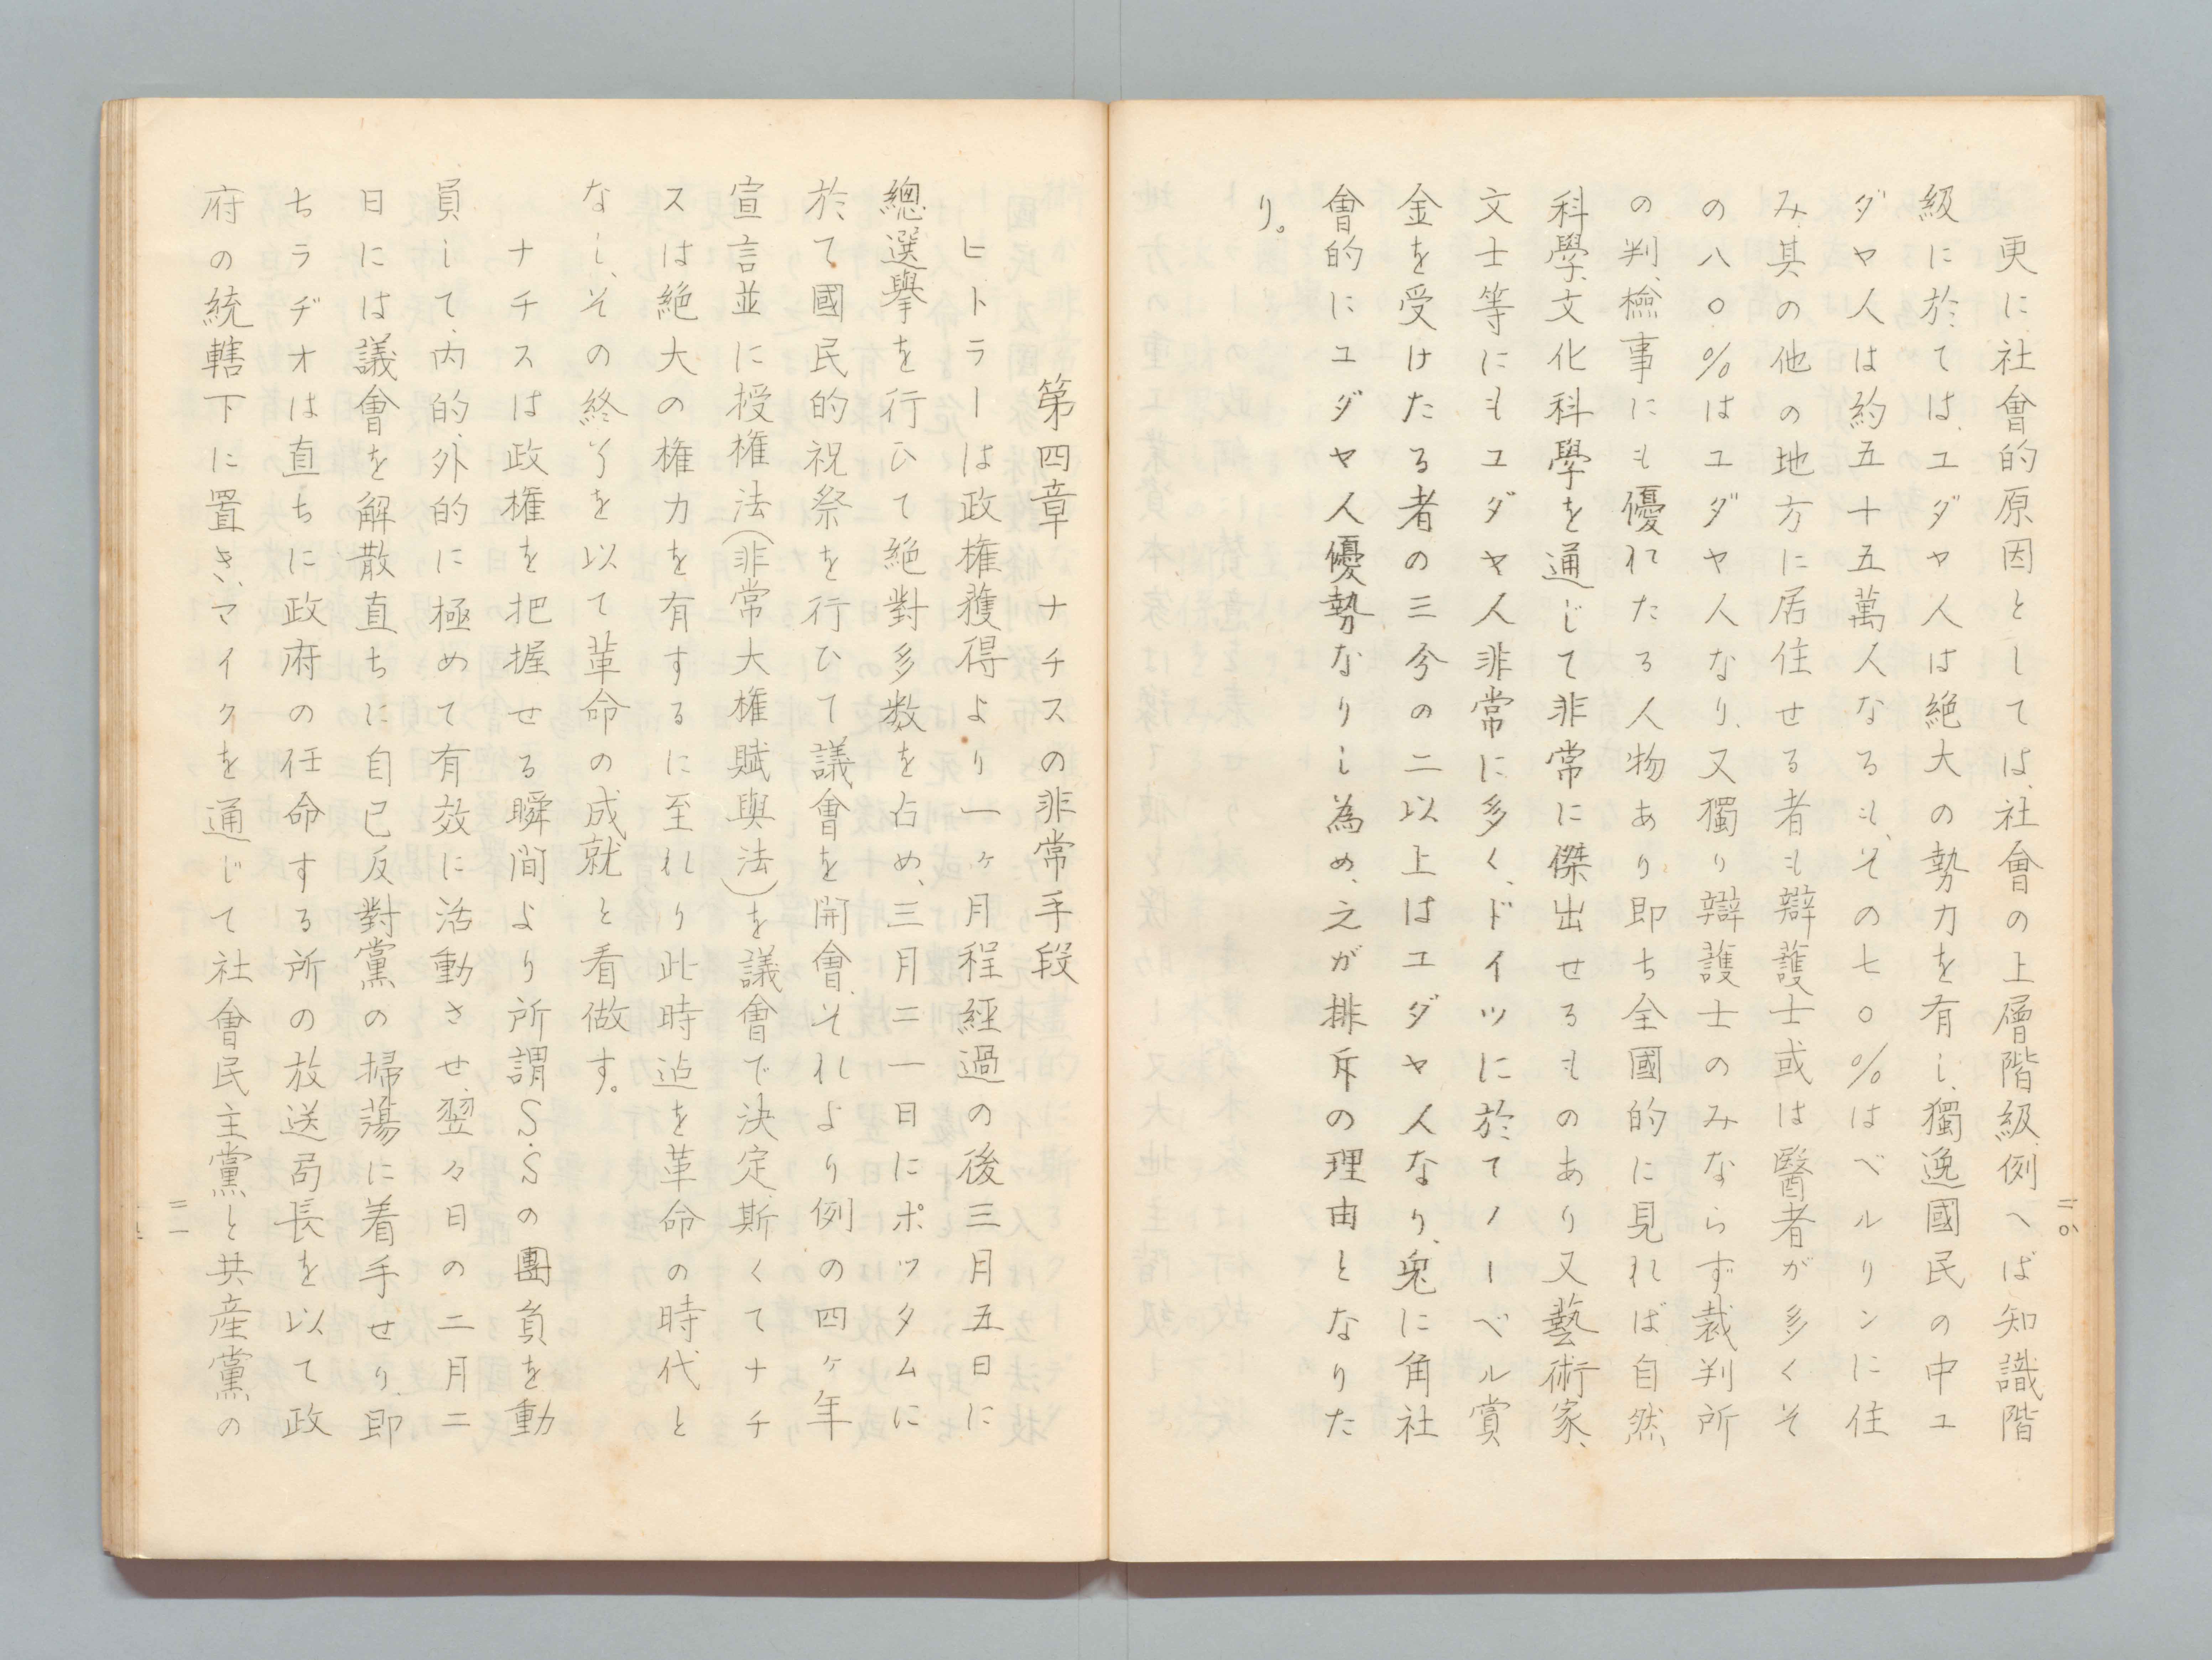 更に、社會的原因としては、社會の上層階級、例へば知識階
級に於ては、ユダヤ人は絶大の勢力を有し、獨逸國民の中ユ
ダヤ人は約五十五萬人なるも、その七〇％はベルリンに住
み、其の他の地方に居住せる者も辯護士或は醫者が多くそ
の八〇％はユダヤ人なり、又獨り辯護士のみならず裁判所
の判、檢事にも優れたる人物あり即ち全國的に見れば自然
科學、文化科學を通じて非常に傑出せるものあり又藝術家、
文士等にもユダヤ人非常に多く、ドイツに於てノーベル賞
金を受けたる者の三分の二以上はユダヤ人なり、兎に角社
會的にユダヤ人優勢なりし為め、之が排斥の理由となりた
り。
三〇
第四章　ナチスの非常手段
ヒトラーは政権獲得より一ヶ月程経過の後三月五日に
總選擧を行ひて絶對多数を占め、三月二一日にポツタムに
於て國民的祝祭を行ひて議會を開會、それより例の四ヶ年
宣言並に授権法（非常大権賦與法）を議會で決定斯くてナチ
スは絶大の権力を有するに至れり此時迠を革命の時代と
なし、その終了を以て革命の成就と看做す。
ナチスは政権を把握せる瞬间より所謂S.Sの團負を動
員して、内的、外的に極めて有效に活動させ、翌々日の二月二
日には議會を解散直ちに自己反對黨の掃蕩に着手せり、即
ちラヂオは直ちに政府の任命する所の放送局長を以て政
府の統轄下に置き、マイクを通じて社會民主黨と共産黨の
三一